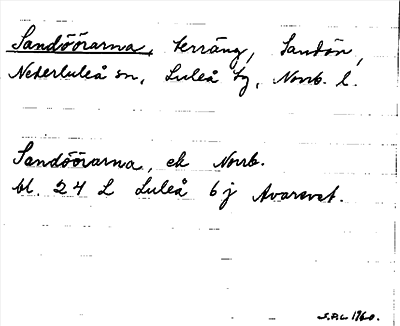 Sandöörarna, terräng, Sandön,
Nederluleå sn, Luleå tg, Norrb. l.
Sandöörarna, ek Norrb.
bl. 24 L Luleå 6 j Avarsvat.
S.P.L 1960.